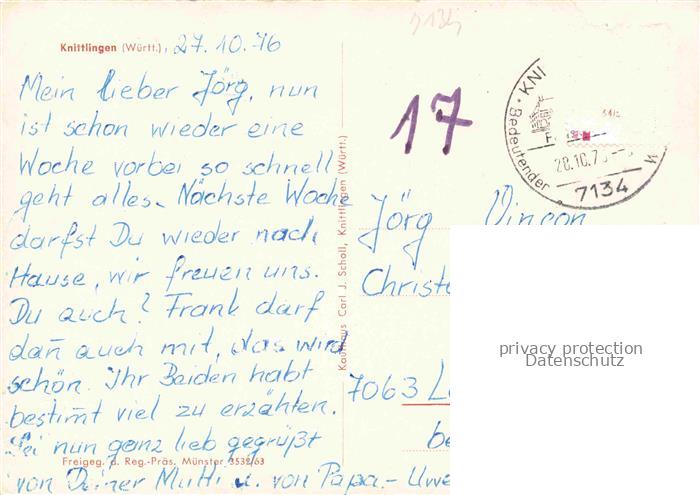 Knittlingen (Württ.), 27.10.76
Mein lieber Jörg, nun
ist schon wieder eine
Woche vorbei so schnell
geht alles. Nächste Woche
darfst Du wieder nach
Hause, wir freuen uns.
Du auch? Frank darf
dan̄ auch mit, das wird
schön. Ihr Beiden habt
bestimt viel zu erzählen.
Sei nun ganz lieb gegrüßt
von Deiner Mutti u. von Papa.- Uwe
Freigeg. d. Reg.-Präs. Münster 3532/63
Kaufhaus Carl J. Scholl, Knittlingen (Württ.)
17
KNI
Bedeutender
28.10.76
7134
Jörg Vinçon
Christ
7063
be
privacy protection
Datenschutz